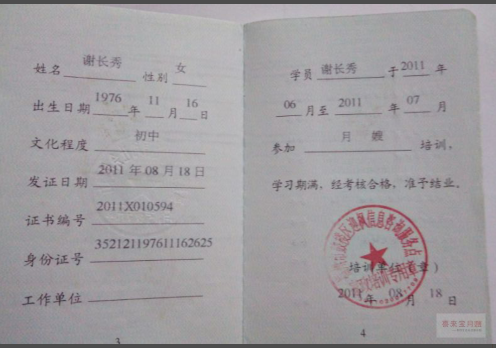 姓名 谢长秀 性别 女
出生日期 1976 年 11 月 16 日
文化程度 初中
发证日期 2011 年 08 月 18 日
证书编号 2011X010594
身份证号 352121197611162625
工作单位
3
学员 谢长秀 于 2011 年
06 月至 2011 年 07 月
参加 月 嫂 培训，
学习期满、经考核合格，准予结业。
培训单位（盖章）
2011 年 08 月 18 日
4